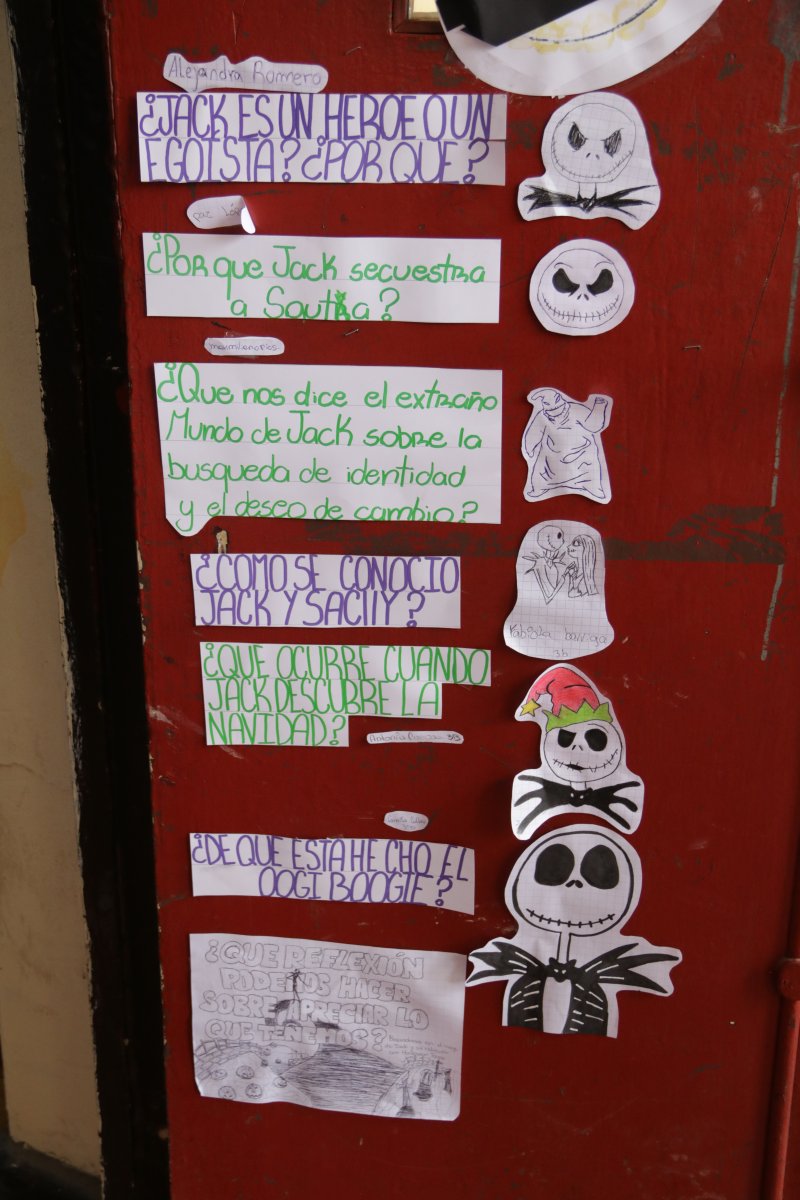 Alejandra Romero
¿JACK ES UN HEROE O UN
EGOISTA? ¿POR QUE?
¿Por que Jack secuestra
a Santa?
¿Que nos dice el extraño
Mundo de Jack sobre la
busqueda de identidad
y el deseo de cambio?
¿COMO SE CONOCIO
JACK Y SACIIY?
¿QUE OCURRE CUANDO
JACK DESCUBRE LA
NAVIDAD?
Antonia
¿DE QUE ESTA HECHO EL
OOGI BOOGIE?
¿QUE REFLEXIÓN
PODEMOS HACER
SOBRE APRECIAR LO
QUE TENEMOS?